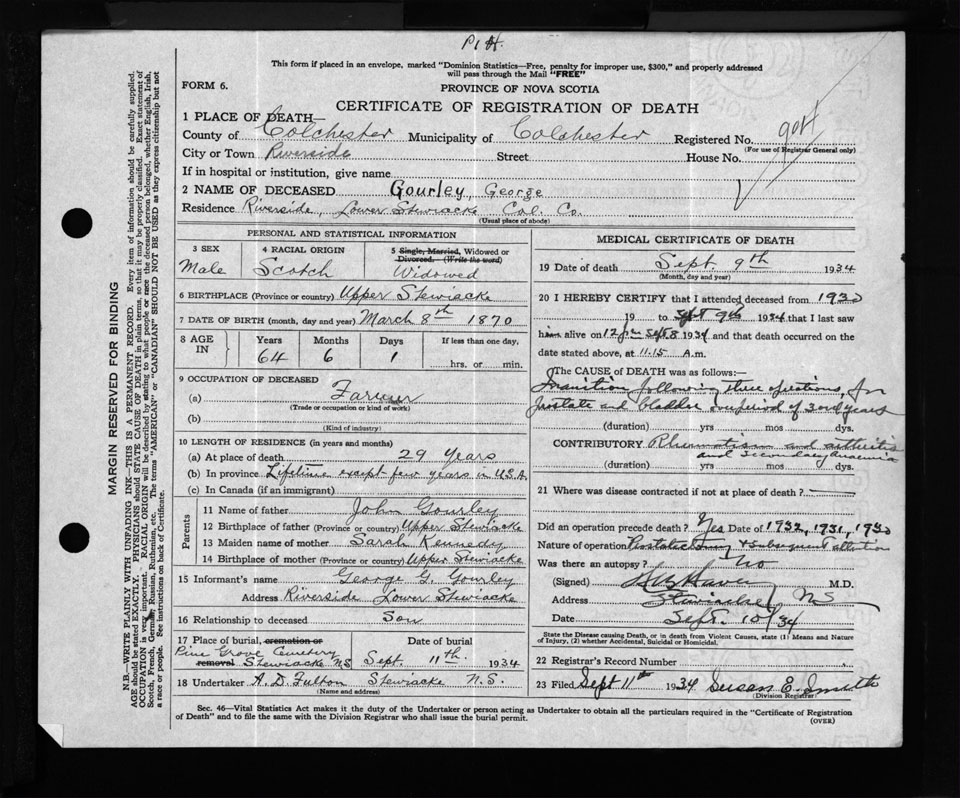 P1H.
This form if placed in an envelope, marked "Dominion Statistics—Free, penalty for improper use, $300," and properly addressed
will pass through the Mail "FREE"
FORM 6.
PROVINCE OF NOVA SCOTIA
CERTIFICATE OF REGISTRATION OF DEATH
1 PLACE OF DEATH—
County of Colchester Municipality of Colchester Registered No. 904
(For use of Registrar General only)
City or Town Riverside Street House No.
If in hospital or institution, give name
2 NAME OF DECEASED Gourley, George
Residence Riverside, Lower Stewiacke Col. Co.
(Usual place of abode)
PERSONAL AND STATISTICAL INFORMATION
3 SEX 4 RACIAL ORIGIN 5 Single, Married, Widowed or
Divorced. (Write the word)
Male Scotch Widowed
6 BIRTHPLACE (Province or country) Upper Stewiacke
7 DATE OF BIRTH (month, day and year) March 8th 1870
8 AGE IN Years Months Days If less than one day,
64 6 1 hrs. or min.
9 OCCUPATION OF DECEASED
(a) Farmer
(Trade or occupation or kind of work)
(b)
(Kind of industry)
10 LENGTH OF RESIDENCE (in years and months)
(a) At place of death 29 Years
(b) In province Lifetime except few years in U.S.A.
(c) In Canada (if an immigrant)
Parents
11 Name of father John Gourley
12 Birthplace of father (Province or country) Upper Stewiacke
13 Maiden name of mother Sarah Kennedy
14 Birthplace of mother (Province or country) Upper Stewiacke
15 Informant's name George G. Gourley
Address Riverside Lower Stewiacke
16 Relationship to deceased Son
17 Place of burial, cremation or Date of burial
Pine Grove Cemetery
removal Stewiacke N.S Sept. 11th. 1934
18 Undertaker A. D. Fulton Stewiacke N.S.
(Name and address)
MEDICAL CERTIFICATE OF DEATH
19 Date of death Sept 9th 1934
(Month, day and year)
20 I HEREBY CERTIFY that I attended deceased from 1930
19 to Sept 9th 1934 that I last saw
him alive on 12 pm Sept 8 1934 and that death occurred on the
date stated above, at 11.15 A.m.
The CAUSE OF DEATH was as follows:—
Inanition following three operations, for
prostate and bladder over period of 3 years
(duration) yrs mos dys.
CONTRIBUTORY Rheumatism and arthritis
and secondary anaemia
(duration) yrs mos dys.
21 Where was disease contracted if not at place of death?
Did an operation precede death? Yes Date of 1932, 1931, 1930
Nature of operation Prostatectomy & subsequent
Was there an autopsy? No
(Signed) M.D.
Address Stewiacke N S
Date Sept. 10/34
State the Disease causing Death, or in death from Violent Causes, state (1) Means and Nature
of Injury, (2) whether Accidental, Suicidal or Homicidal.
22 Registrar's Record Number
23 Filed Sept 11th 1934 Susan E. Smith
(Division Registrar)
Sec. 46—Vital Statistics Act makes it the duty of the Undertaker or person acting as Undertaker to obtain all the particulars required in the "Certificate of Registration
of Death" and to file the same with the Division Registrar who shall issue the burial permit.
(OVER)
MARGIN RESERVED FOR BINDING
N.B.—WRITE PLAINLY WITH UNFADING INK—THIS IS A PERMANENT RECORD. Every item of information should be carefully supplied.
AGE should be stated EXACTLY. PHYSICIANS should state CAUSE OF DEATH in plain terms, so that it may be properly classified. Exact statement of
OCCUPATION is very important. RACIAL ORIGIN will be described by stating to what people or race the deceased person belonged, whether English, Irish,
Scotch, French, German, Russian, Ruthenian, etc. The terms "AMERICAN" or "CANADIAN" SHOULD NOT BE USED as they express citizenship but not
a race or people. See instructions on back of Certificate.